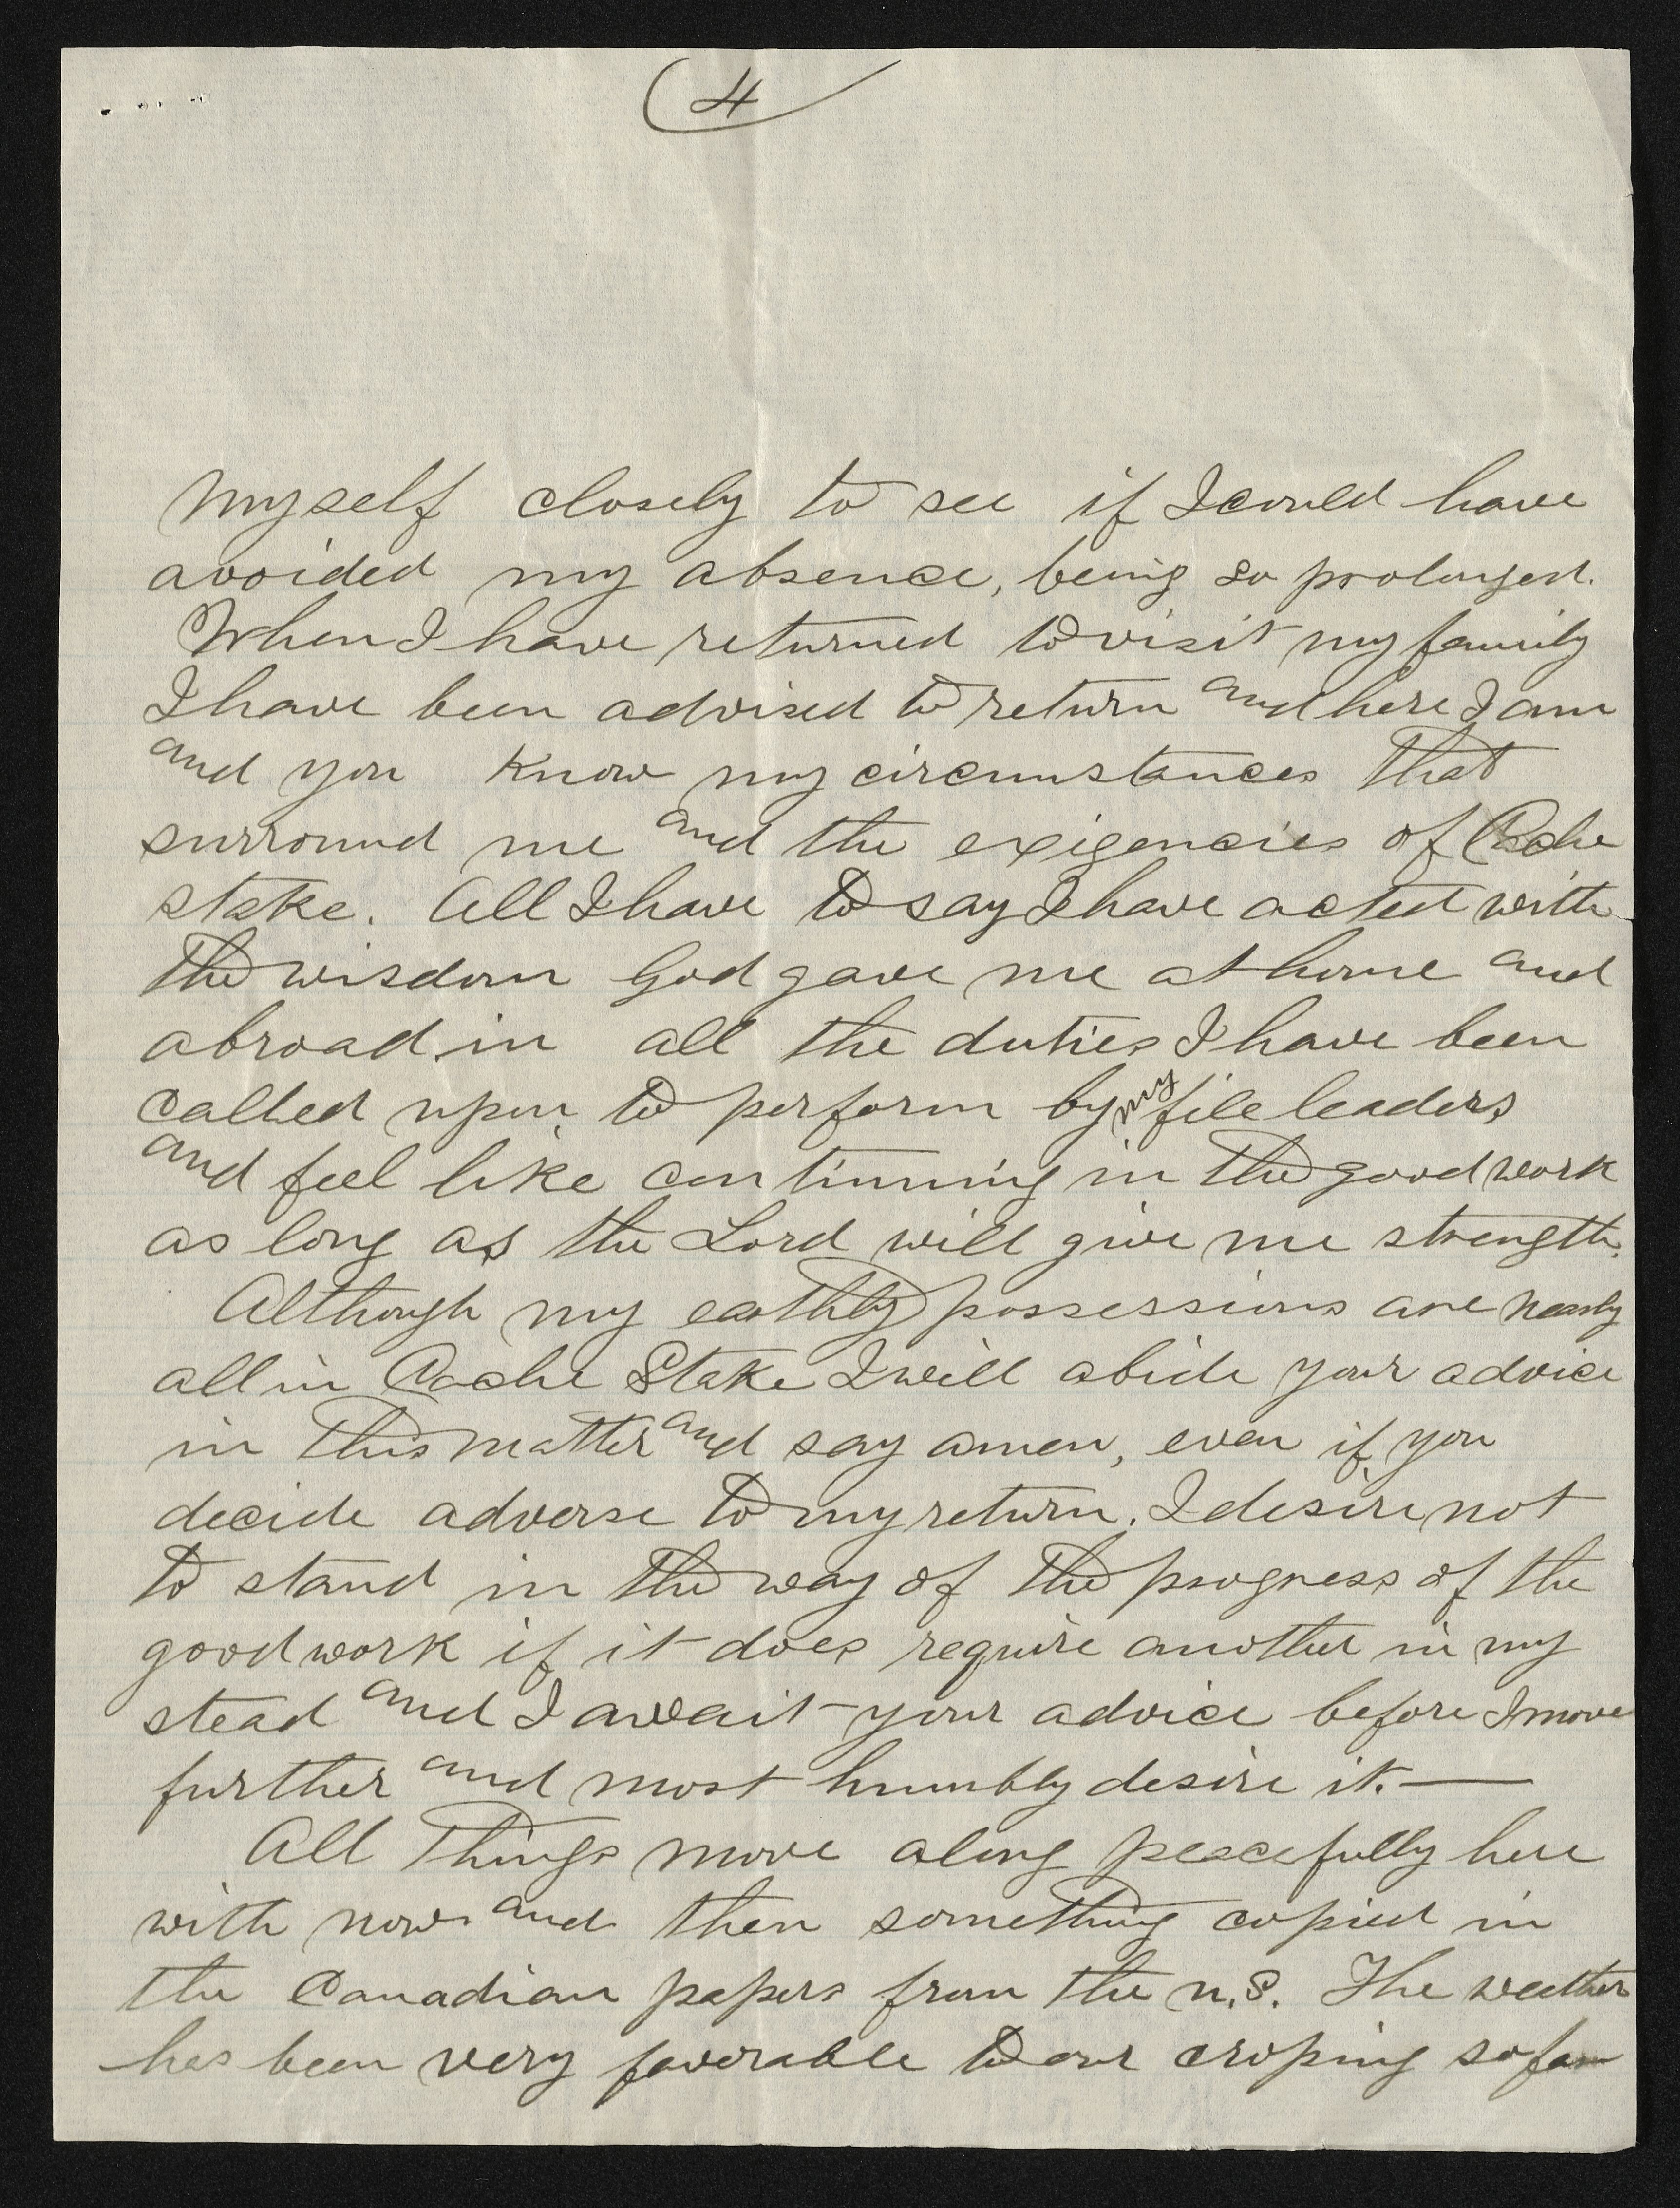 4
myself closely to see if I could have
avoided my absence, being so prolonged.
When I have returned to visit my family
I have been advised to return and here I am
and you know my circumstances that
surround me and the exigencies of Cache
stake. All I have to say I have acted with
the wisdom God gave me at home and
abroad in all the duties I have been
called upon to perform by my file leaders
and feel like continuing in the good work
as long as the Lord will give me strength.
Although my earthly possessions are nearly
all in Cache Stake I will abide your advice
in this matter and say amen, even if you
decide adverse to my return. I desire not
to stand in the way of the progress of the
good work if it does require another in my
stead and I await your advice before I move
further and most humbly desire it.—
All things move along peacefully here
with now and then something copied in
the Canadian papers from the n.S. The weather
has been very faverable to our croping so far